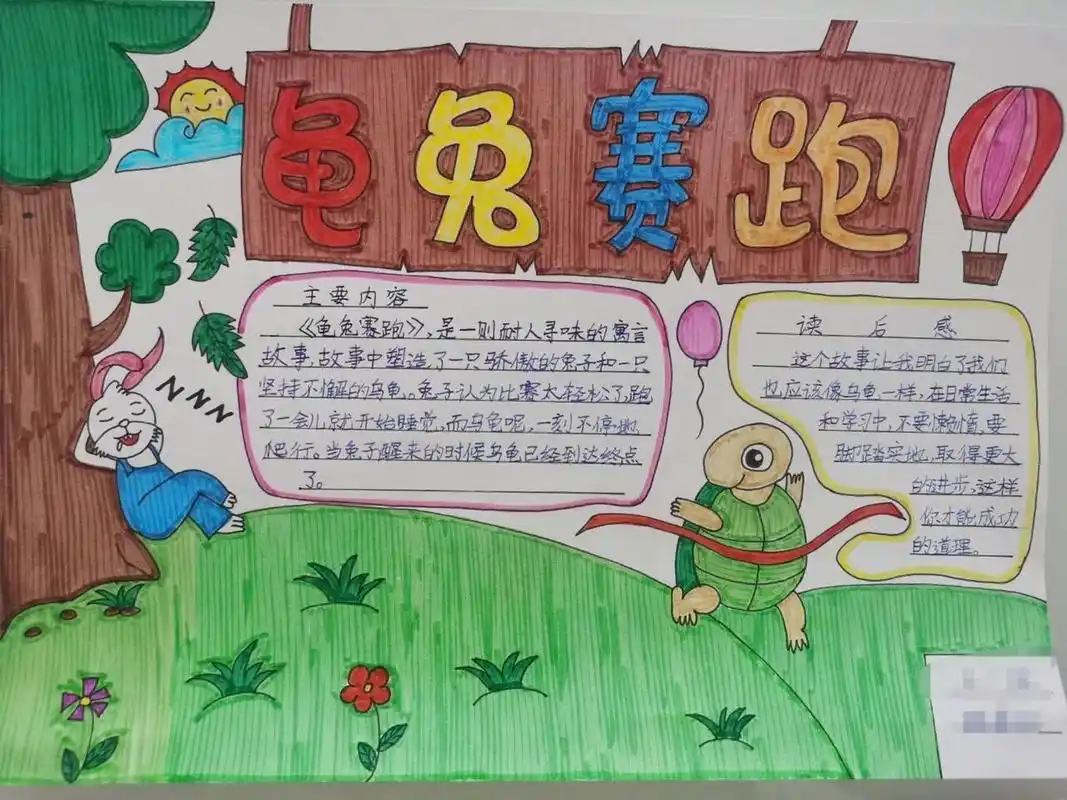 龟兔赛跑
主要内容
《龟兔赛跑》,是一则耐人寻味的寓言
故事,故事中塑造了一只骄傲的兔子和一只
坚持不懈的乌龟。兔子认为比赛太轻松了,跑
了一会儿就开始睡觉,而乌龟呢,一刻不停地
爬行。当兔子醒来的时候乌龟已经到达终点
了。
NNN
读后感
这个故事让我明白了我们
也应该像乌龟一样,在日常生活
和学习中,不要懒惰,要
脚踏实地,取得更大
的进步,这样
你才能成功
的道理。